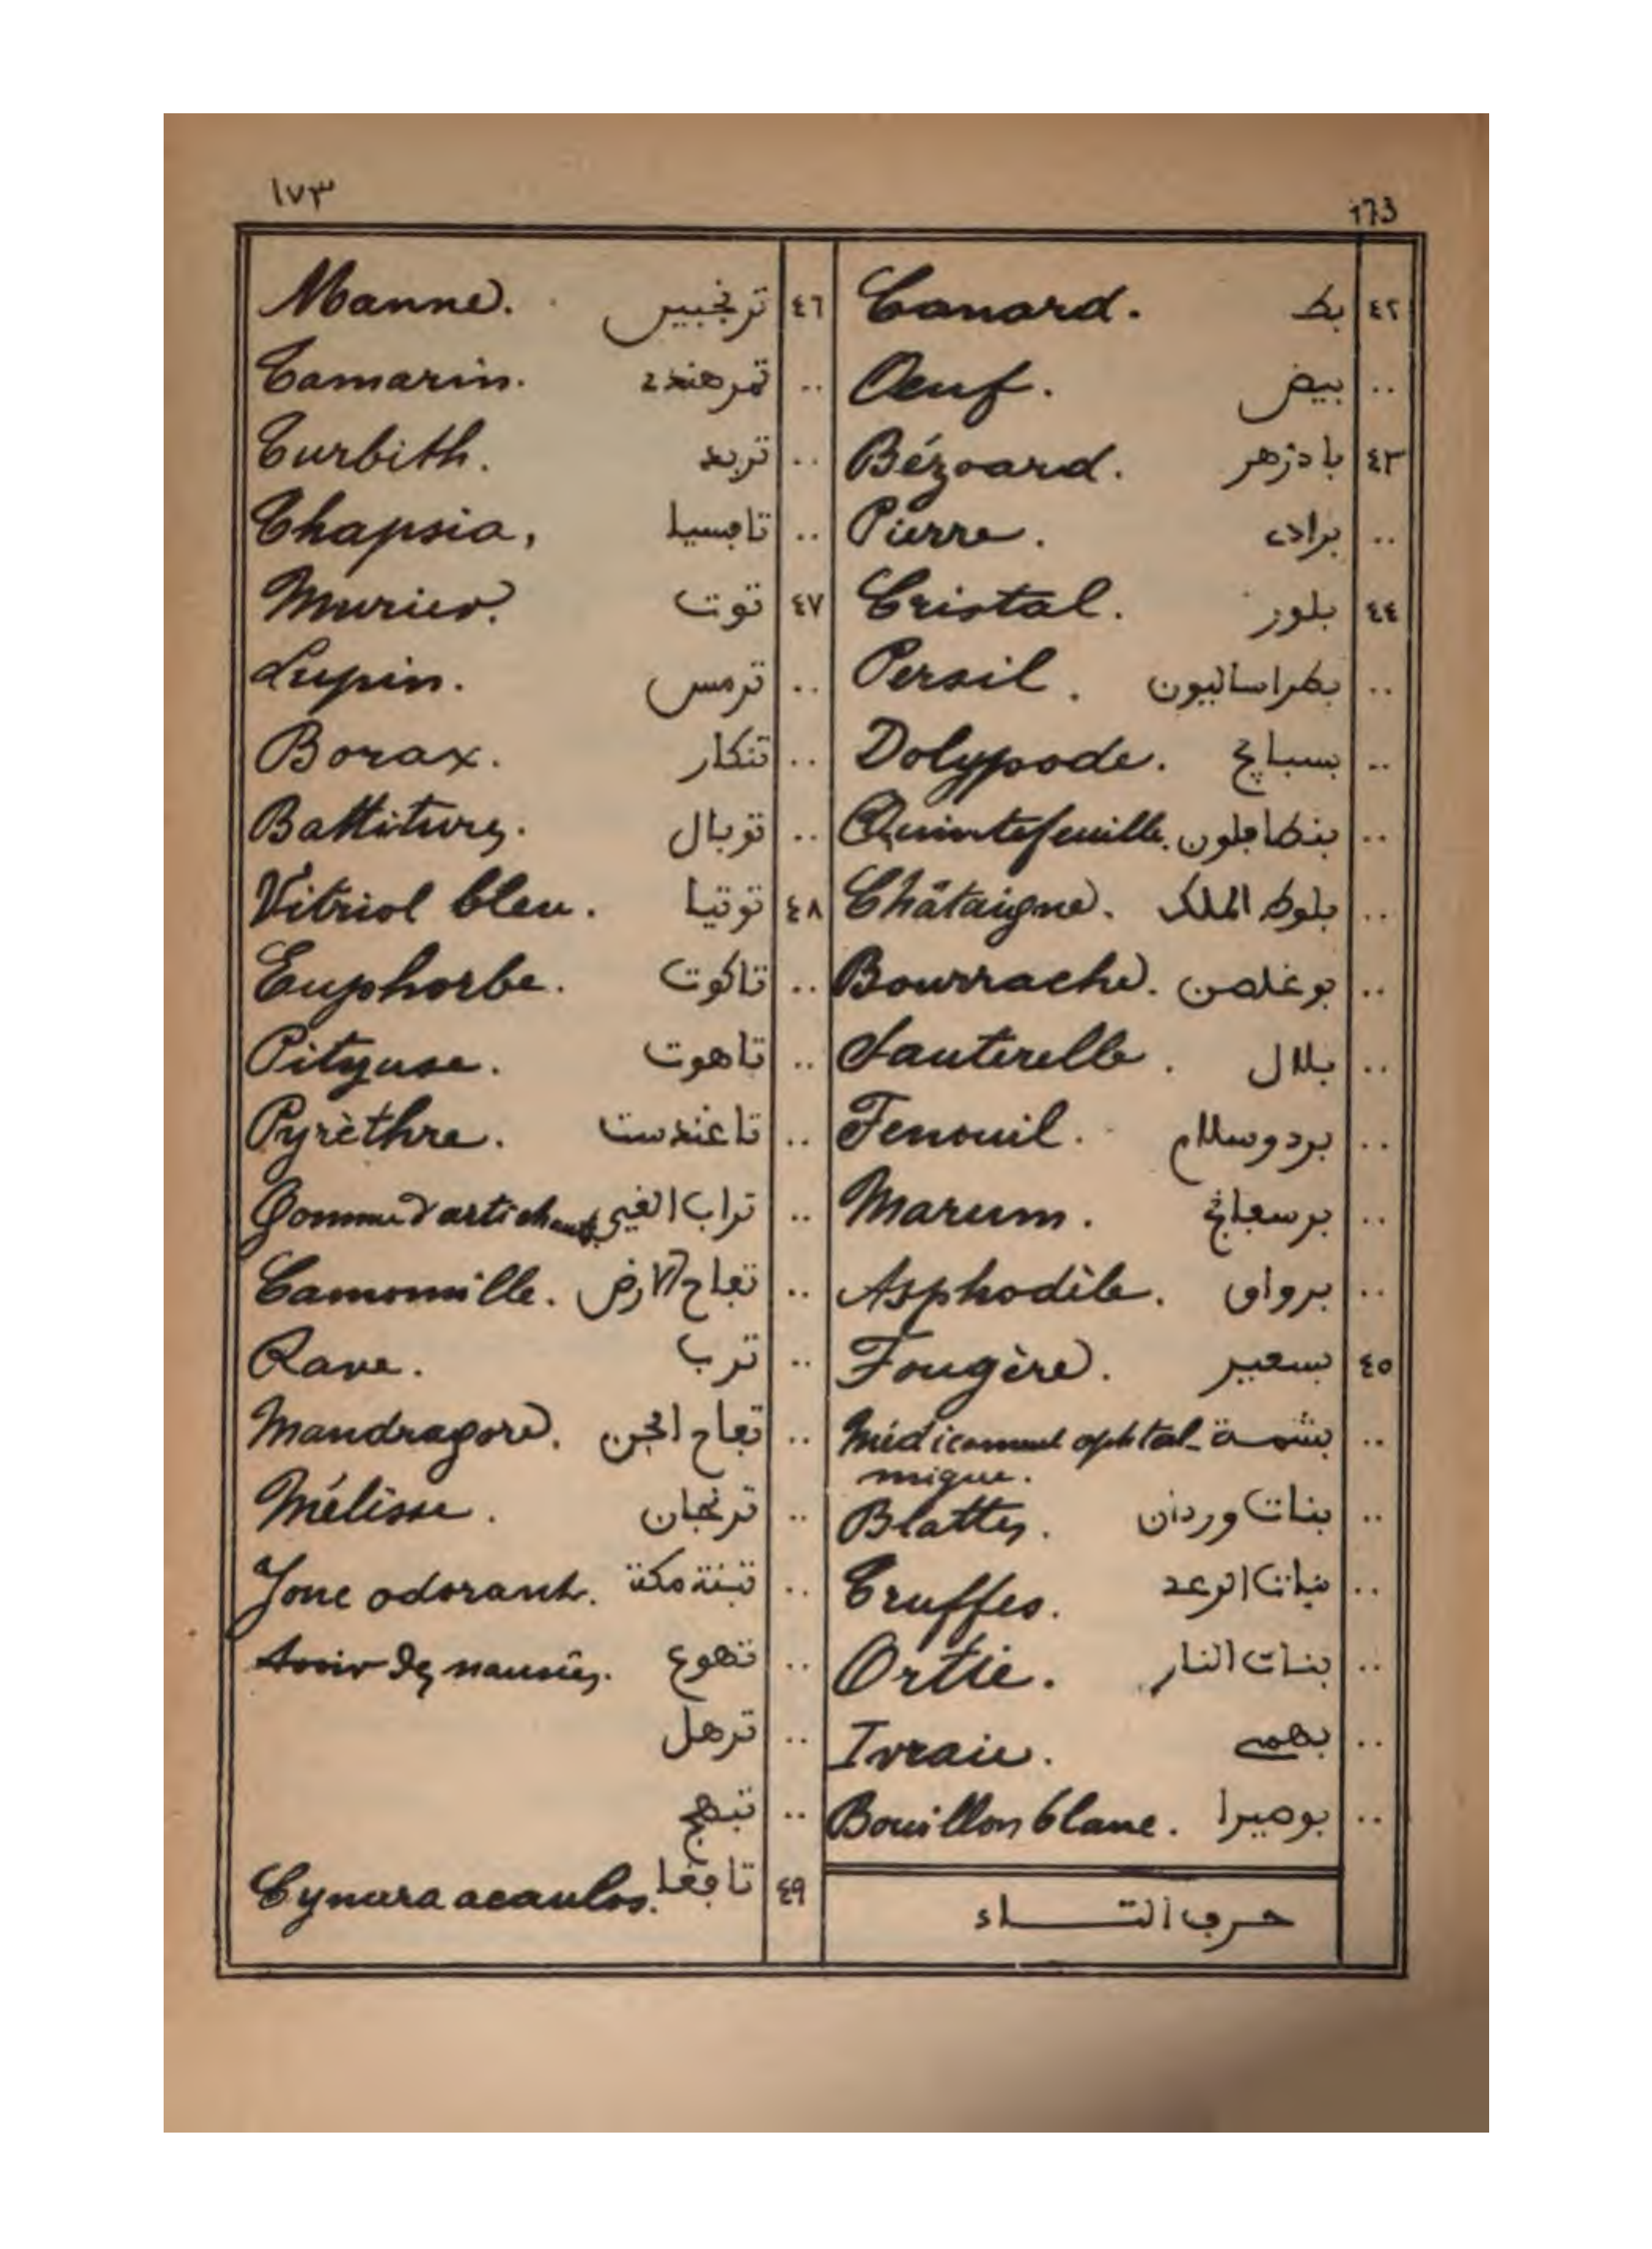 ١٧٣
173
٤٢ بط Canard.
.. بيض Oeuf.
٤٣ بادزهر Bézoard.
.. برادى Pierre.
٤٤ بلور Cristal.
.. بطراساليون Persil.
.. بسبايج Polypode.
.. بنطاڢلون Quintefeuille.
.. بلوط الملك Châtaigne.
.. بوغلصن Bourrache.
.. بلال Sauterelle.
.. بردوسلام Fenouil.
.. برسڢانج Marum.
.. برواق Asphodèle.
٤٥ بسڢير Fougère.
.. بشمة Médicament ophtal-
mique.
.. بنات وردان Blattes.
.. بنات الرعد Truffes.
.. بنات النار Ortie.
.. بهمى Ivraie.
.. بوصيرا Bouillon blanc.
حرڢ التـــاء
٤٦ ترنجبين Manne.
.. تمر هندى Tamarin.
.. تربد Turbith.
.. تاڢسيا Thapsia.
٤٧ توت Murier.
.. ترمس Lupin.
.. تنكار Borax.
.. توبال Battitures.
٤٨ توتيا Vitriol bleu.
.. تاكوت Euphorbe.
.. تاهوت Pityuse.
.. تاغندست Pyrèthre.
.. تراب الفيء Gomme d'artichaut.
.. تڢاح الارض Camomille.
.. ترب Rave.
.. تڢاح الجن Mandragore.
.. ترنجان Mélisse.
.. تبنة مكة Jonc odorant.
.. تهوع Avoir des nausées.
.. ترهل
.. تبهج
٤٩ تاڢغا Cynara acaulos.